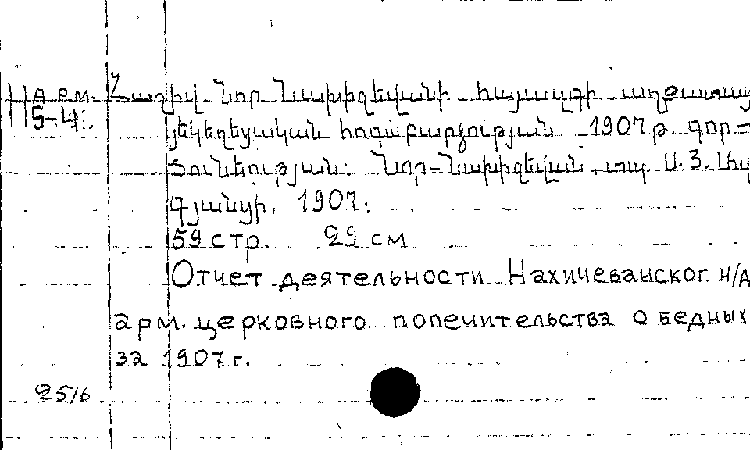 Нарм. Հաշիվ Նոր Նախիջևանի հայազգի աղքատաց
5-4.
յեկեղեցական հոգաբարձության 1907 թ. գոր-
ծունեության: Նոր-Նախիջևան, տպ. Ս. Յ.
գյանցի, 1907:
59 стр. 22 см
Отчет деятельности Нахичеванског. н/д
арм. церковного попечительства о бедных
за 1907 г.
2516